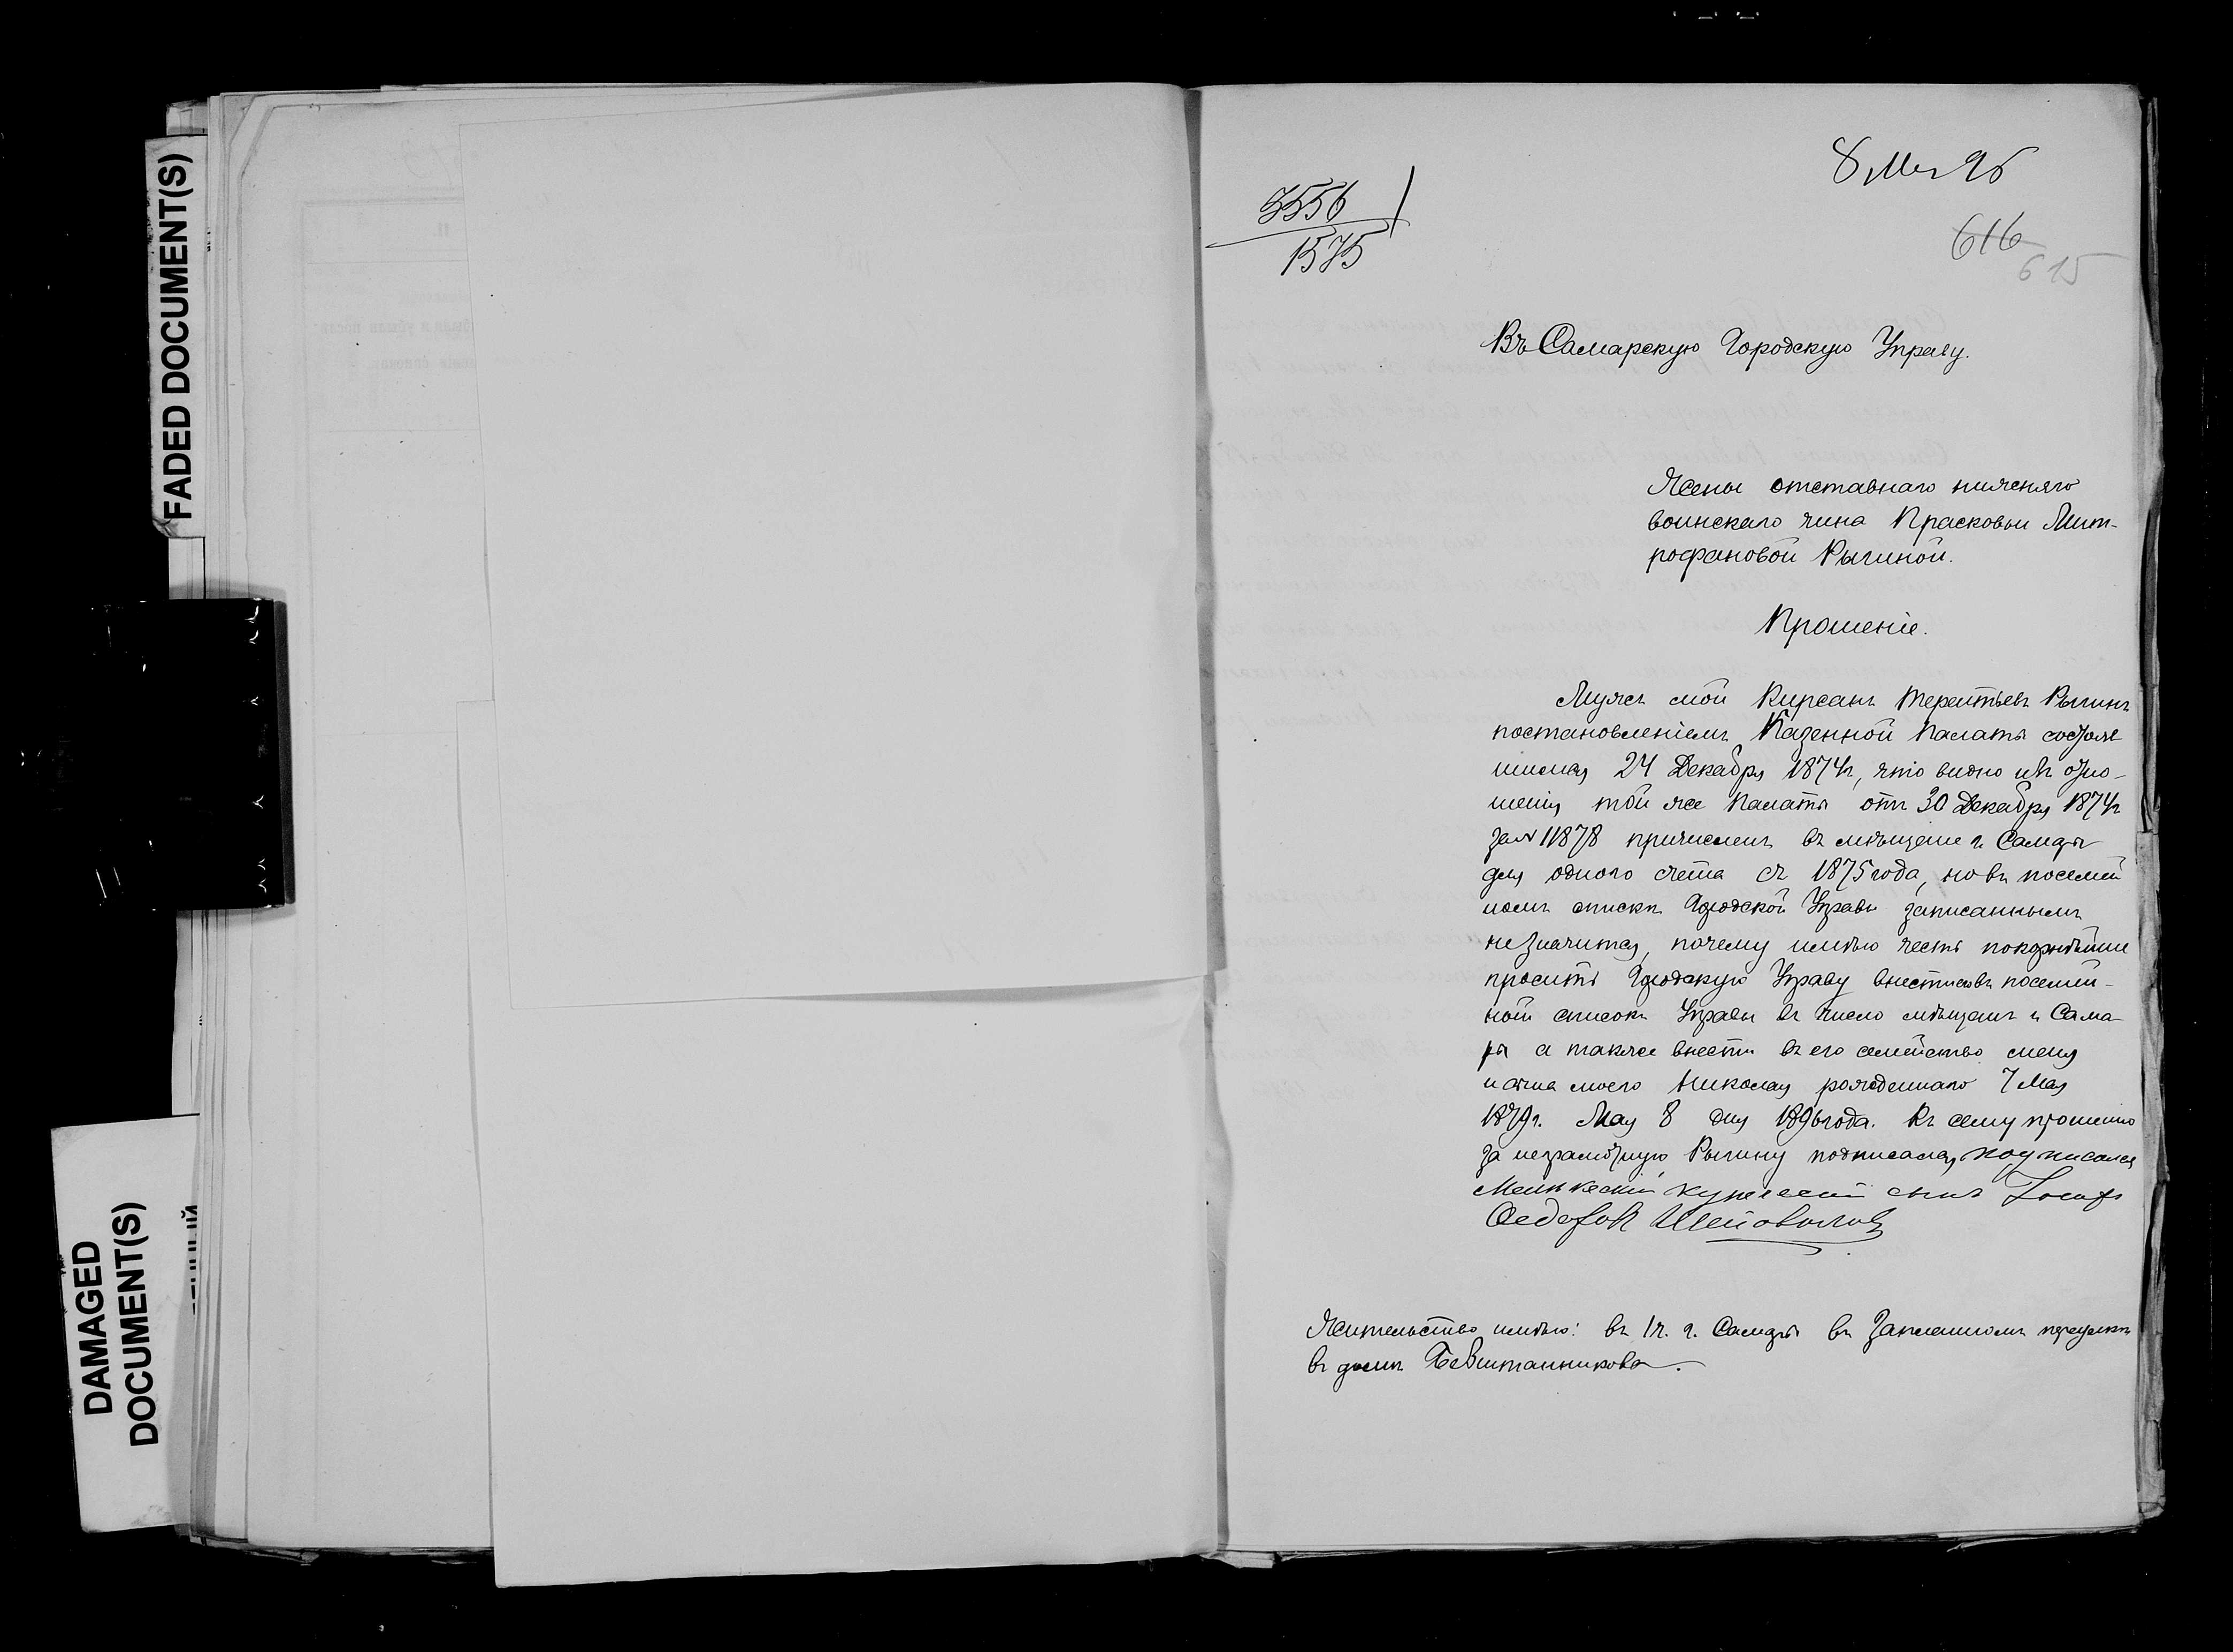 FADED DOCUMENT(S)
DAMAGED
DOCUMENT(S)
8 Мая 96
3556
1575
616
615
Въ Самарскую Городскую Управу.
Жены отставнаго нижняго
воинскаго чина Прасковьи Мит-
рофановой Рыгиной.
Прошеніе.
Мужъ мой Кирсанъ Терентьевъ Рыгинъ
постановленіемъ Казенной Палаты состояв-
шимся 24 Декабря 1874г, что видно изъ отно-
шенія той же Палаты отъ 30 Декабря 1874г
за № 11878 причисленъ въ мѣщане г. Самары
для одного счета съ 1875 года, но въ посемей
номъ спискѣ Городской Управы записаннымъ
не значится, почему имѣю честь покорнѣйше
просить Городскую Управу внести въ посемей-
ный списокъ Управы въ число мѣщанъ г. Сама-
ры а также внести въ его семейство меня
и сына моего Николая рожденнаго 7 Мая
1879г. Мая 8 дня 1896 года. Къ сему прошенію
за неграмотную Рыгину подписался, подписался
купеческій сынъ
Федоровъ
Жительство имѣю: въ 1 ч. г. Самары въ переулкѣ
въ домѣ